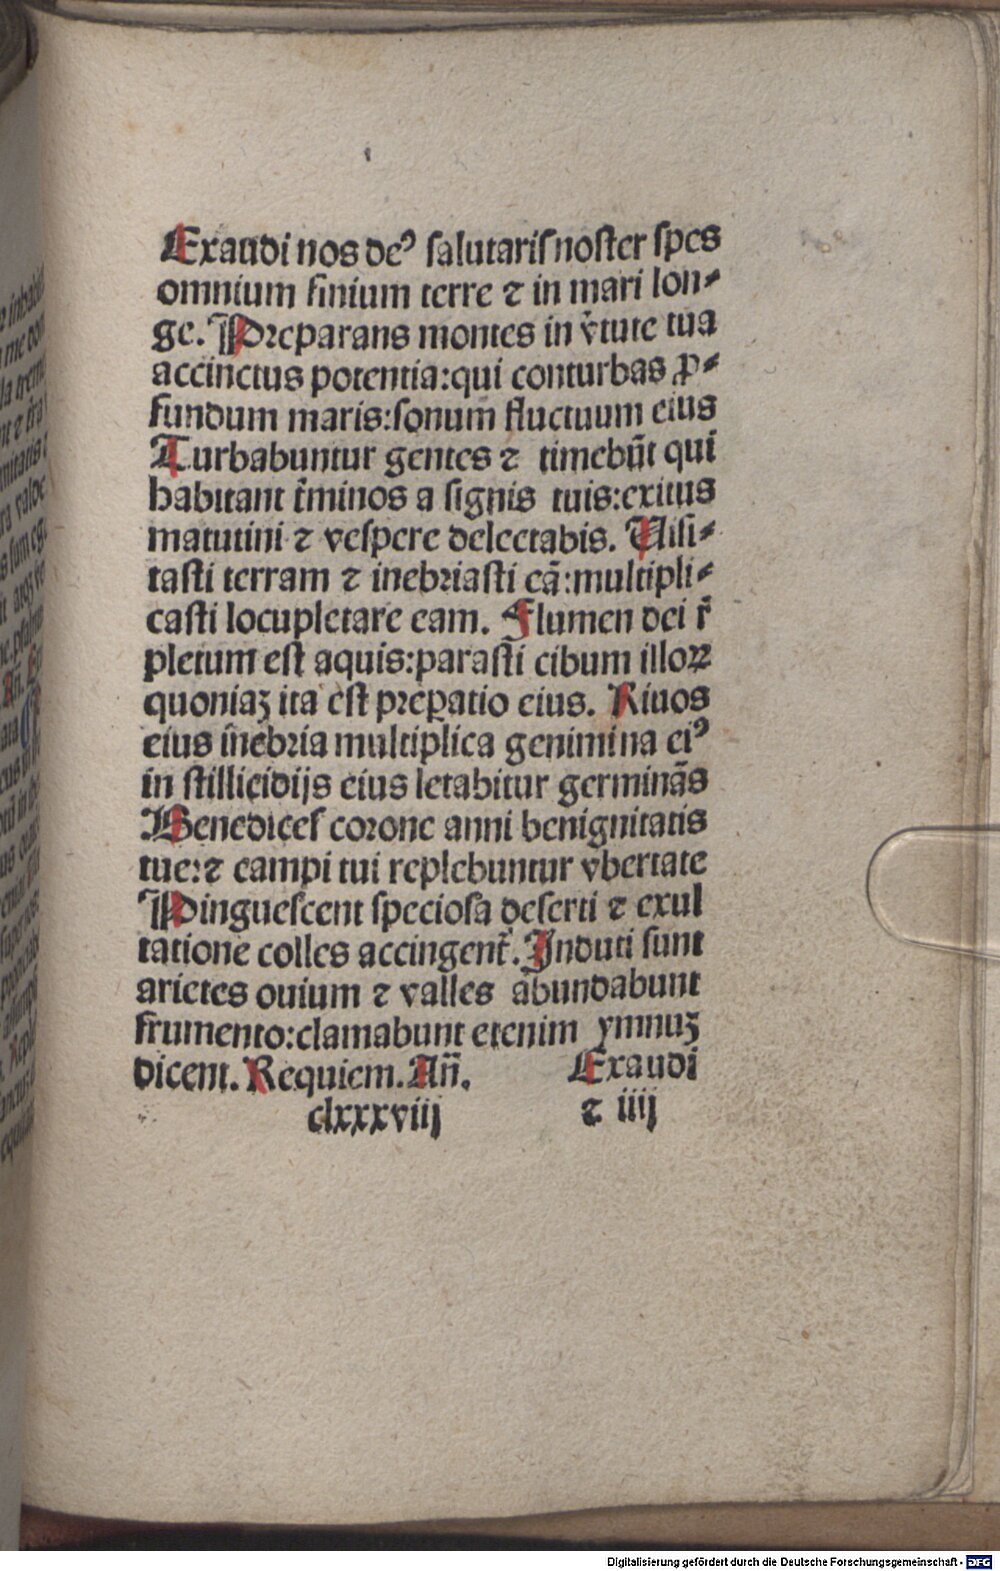 Exaudi nos deꝰ salutaris noster spes
omnium finium terre ⁊ in mari lon⸗
ge. Preparans montes in v̓tute tua
accinctus potentia:qui conturbas ꝓ⸗
fundum maris:sonum fluctuum eius
Turbabuntur gentes ⁊ timebūt qui
habitant t̓minos a signis tuis:exitus
matutini ⁊ vespere delectabis. Uisi⸗
tasti terram ⁊ inebriasti eā:multipli⸗
casti locupletare eam. Flumen dei r̄
pletum est aquis:parasti cibum illoꝝ
quoniaꝫ ita est preꝑatio eius. Riuos
eius inebria multiplica genimina eiꝰ
in stillicidijs eius letabitur germinās
Benedices corone anni benignitatis
tue:⁊ campi tui replebuntur vbertate
Pinguescent speciosa deserti ⁊ exul
tatione colles accingent̓. Induti sunt
arietes ouium ⁊ valles abundabunt
frumento:clamabunt etenim ymnuꝫ
dicent. Requiem. Añ. Exaudi
clxxxviij ⁊ iiij
Digitalisierung gefördert durch die Deutsche Forschungsgemeinschaft - DFG